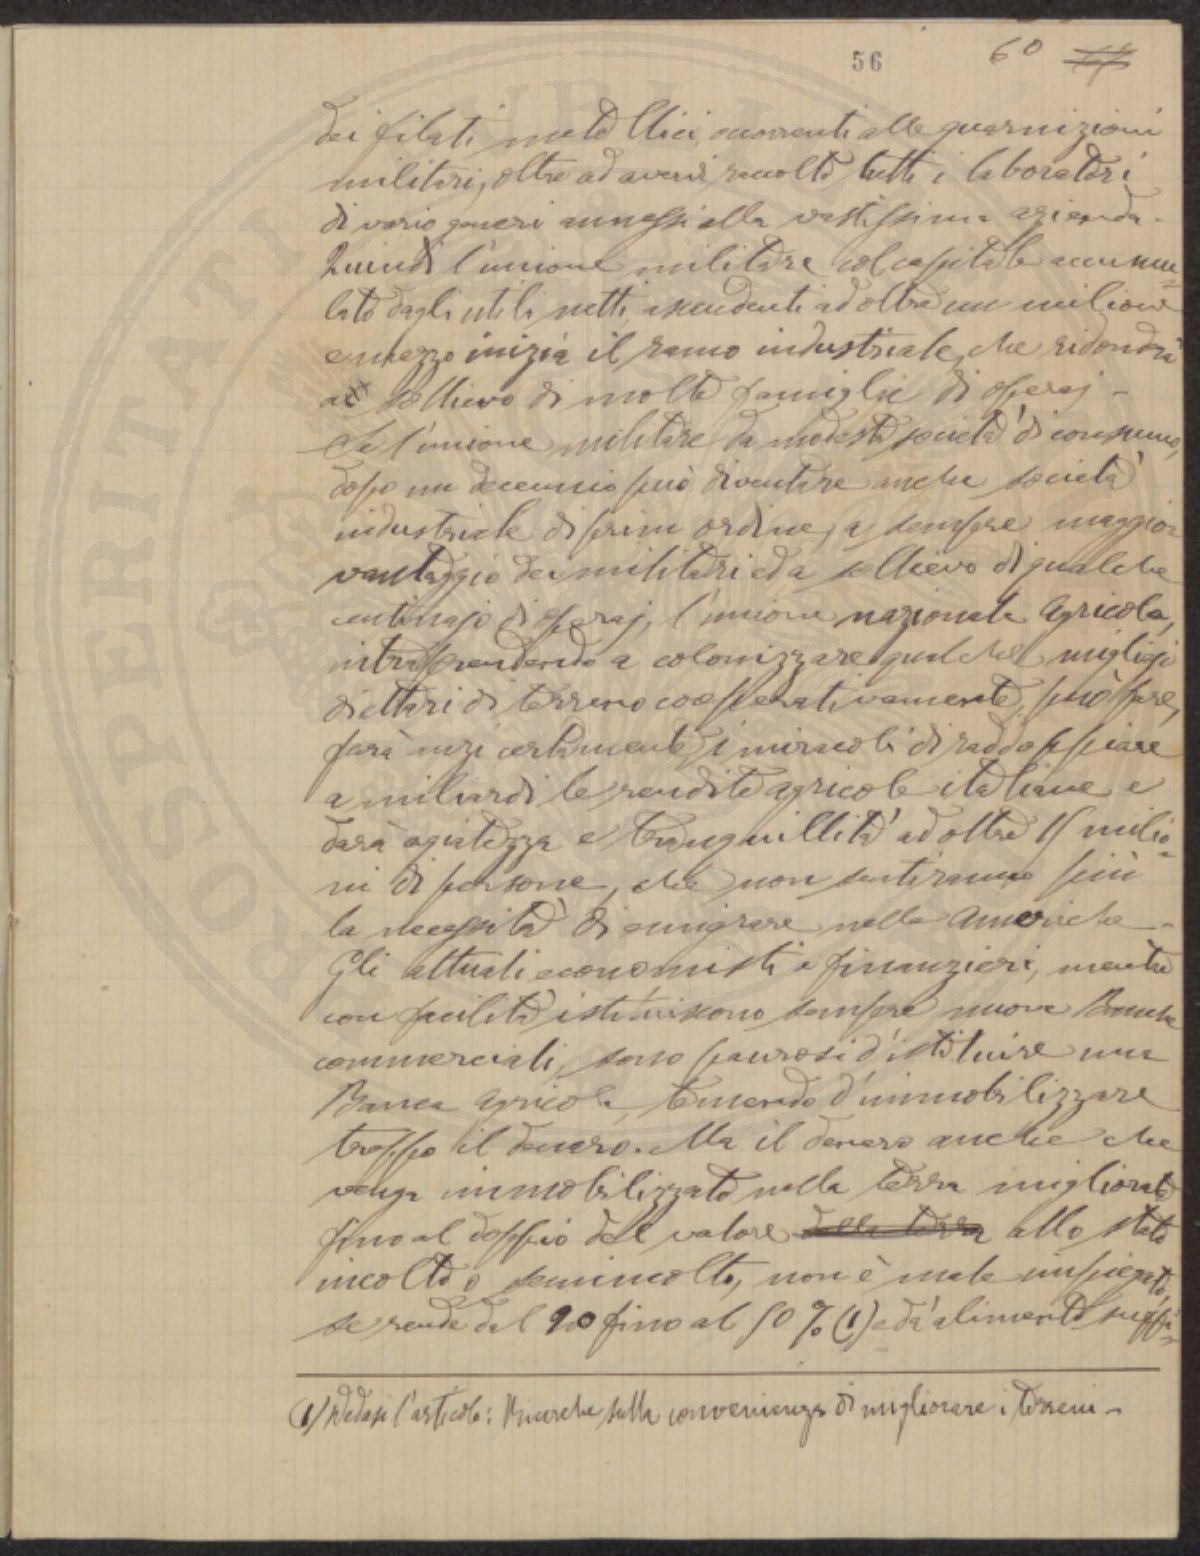 56 60
dei filati metallici, occorrenti alle guarnizioni
militari, oltre ad aver raccolto tutti i laboratori
di vario generi annessi alla vastissima azienda.
Quindi l'unione militare col capitale accumu-
lato dagli utili netti, ascendenti ad oltre un milione
e mezzo inizia il ramo industriale, che ridondrà
a sollievo di molte famiglie di operaj -
Se l'unione militare da modesta società di consumo,
dopo un decennio può diventare anche società
industriale di prim ordine, a sempre maggior
vantaggio dei militari ed a sollievo di qualche
centinajo di operaj, l'unione nazionale agricola,
intraprendendo a colonizzare qualche migliajo
di ettari di terreno cooperativamente, può fare,
farà anzi certamente, i miracoli di raddoppiare
a miliardi le rendite agricole italiane e
darà agiatezza e tranquillità ad oltre 15 milio-
ni di persone, che non sentiranno più
la necessità di emigrare nelle Americhe -
Gli attuali economisti e finanzieri, mentre
con facilità istituiscono sempre nuove Banche
commerciali, sono paurosi d'istituire una
Banca agricola, temendo d'immobilizzare
troppo il denaro. Ma il denaro anche che
venga immobilizzato nella terra migliorata
fino al doppio del valore della terra allo stato
incolto o semincolto, non è male impiegato,
se rende dal 20 fino al 50 % (1) e dà alimento suffi-
(1) Vedasi l'articolo: Ricerche sulla convenienza di migliorare i terreni -
PROSPERITATI